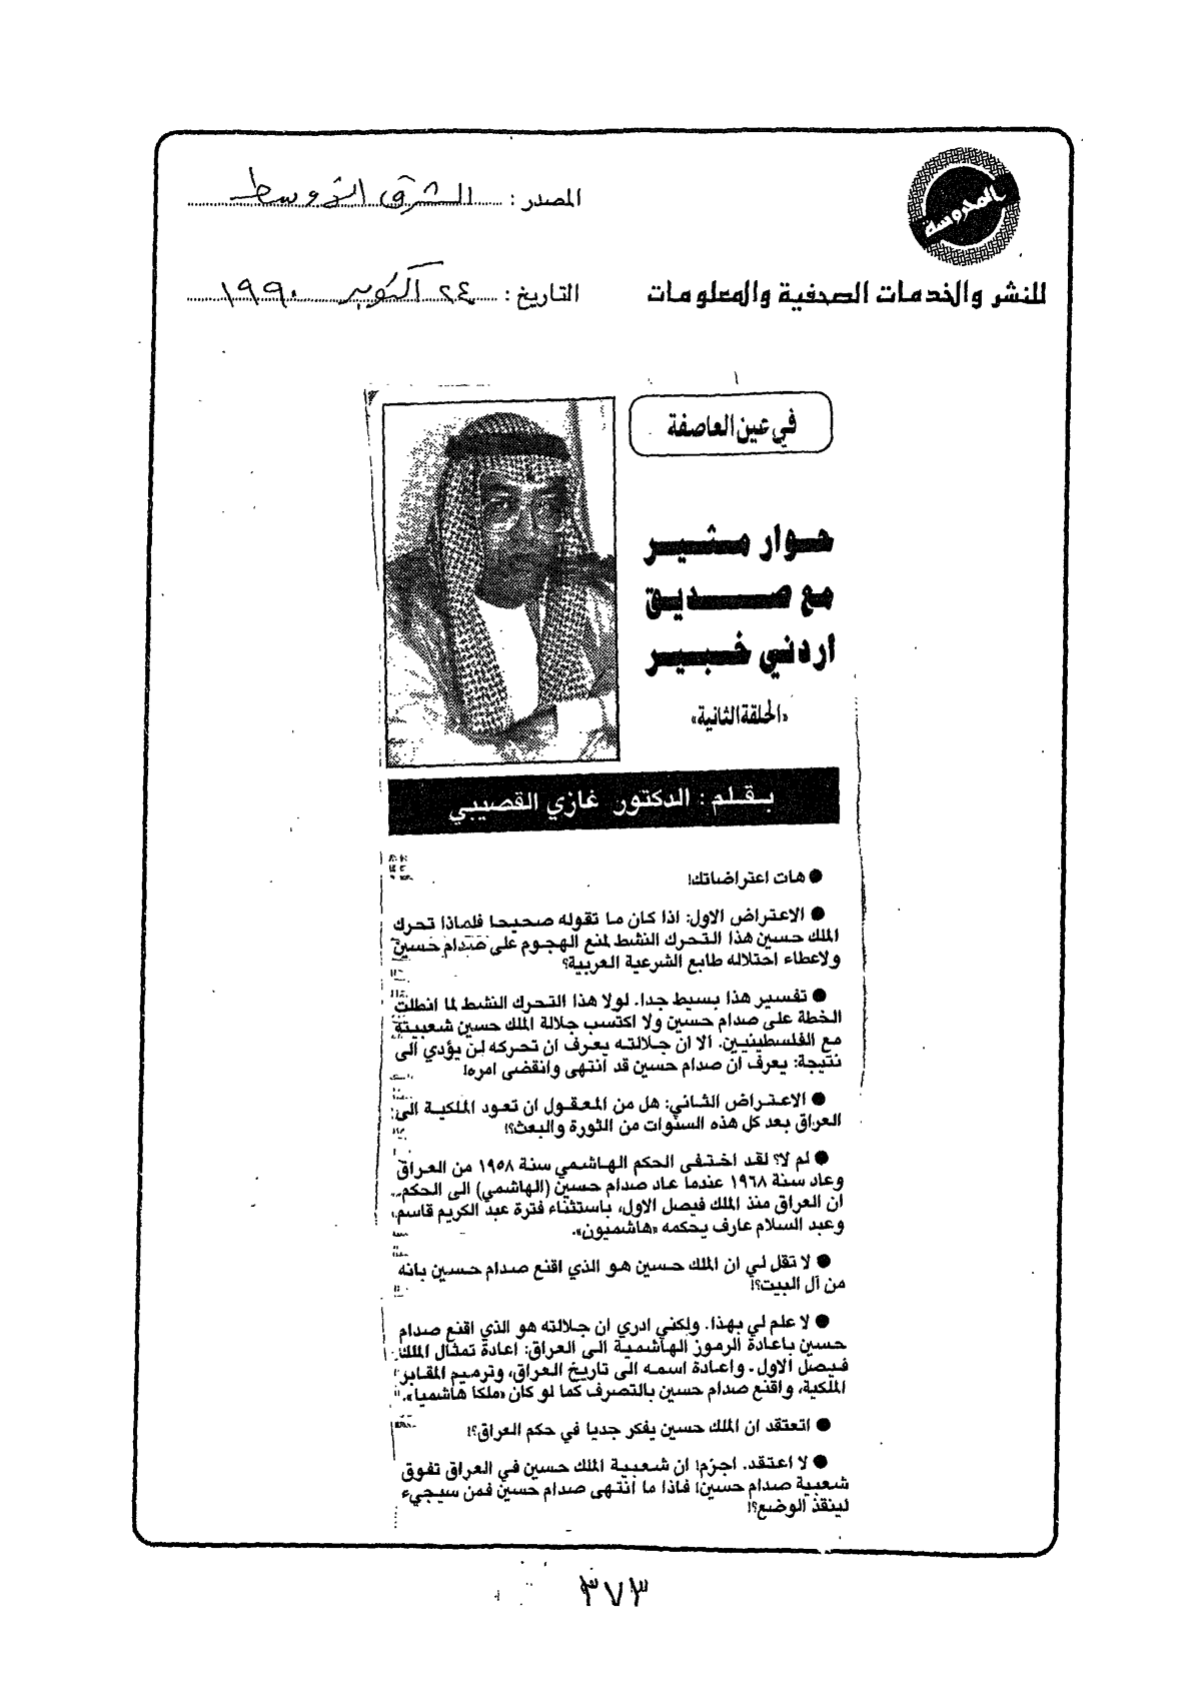 المحروسة
للنشر والخدمات الصحفية والمعلومات
المصدر : الشرق الأوسط
التاريخ : ٢٤ أكتوبر ١٩٩٠
في عين العاصفة
حوار مثير
مع صديق
اردني خبير
«الحلقة الثانية»
بقلم : الدكتور غازي القصيبي
● هات اعتراضاتك!
● الاعتراض الاول: اذا كان ما تقوله صحيحا فلماذا تحرك
الملك حسين هذا التحرك النشط لمنع الهجوم على صدام حسين
ولاعطاء احتلاله طابع الشرعية العربية؟
● تفسير هذا بسيط جدا. لولا هذا التحرك النشط لما انطلت
الخطة على صدام حسين ولا اكتسب جلالة الملك حسين شعبيته
مع الفلسطينيين. الا ان جلالته يعرف ان تحركه لن يؤدي الى
نتيجة: يعرف ان صدام حسين قد انتهى وانقضى امره!
● الاعتراض الثاني: هل من المعقول ان تعود الملكية الى
العراق بعد كل هذه السنوات من الثورة والبعث؟!
● لم لا؟ لقد اختفى الحكم الهاشمي سنة ١٩٥٨ من العراق
وعاد سنة ١٩٦٨ عندما عاد صدام حسين (الهاشمي) الى الحكم..
ان العراق منذ الملك فيصل الاول، باستثناء فترة عبد الكريم قاسم
وعبد السلام عارف يحكمه «هاشميون».
● لا تقل لي ان الملك حسين هو الذي اقنع صدام حسين بانه
من آل البيت؟!
● لا علم لي بهذا. ولكني ادري ان جلالته هو الذي اقنع صدام
حسين باعادة الرموز الهاشمية الى العراق: اعادة تمثال الملك
فيصل الاول. واعادة اسمه الى تاريخ العراق، وترميم المقابر
الملكية، واقنع صدام حسين بالتصرف كما لو كان «ملكا هاشميا».
● اتعتقد ان الملك حسين يفكر جديا في حكم العراق؟!
● لا اعتقد. اجزم! ان شعبية الملك حسين في العراق تفوق
شعبية صدام حسين! فاذا ما انتهى صدام حسين فمن سيجيء
لينقذ الوضع؟!
٣٧٣